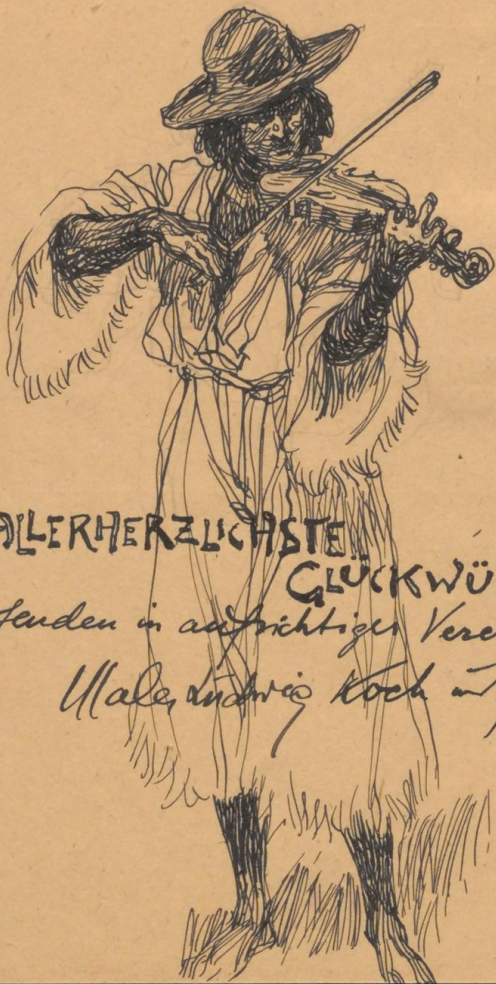 ALLERHERZLICHSTE
GLÜCKWÜ
senden in aufrichtiger Vere
Maler Ludwig Koch und